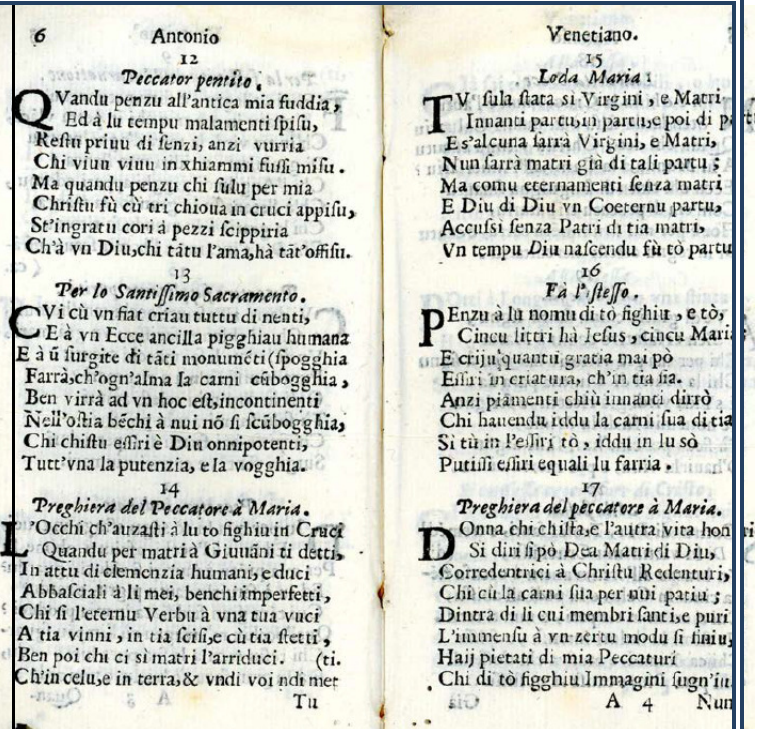 6 Antonio
12
Peccator pentito.
QVandu penzu all'antica mia fuddia,
Ed à lu tempu malamenti ſpiſu,
Reſtu priuu di ſenzi, anzi vurria
Chi viuu viuu in xhiammi fuſſi miſu.
Ma quandu penzu chi ſulu per mia
Chriſtu fù cù tri chioua in cruci appiſu,
St'ingratu cori à pezzi ſcippiria
Ch'à vn Diu,chi tãtu l'ama,hà tãt'offiſu.
13
Per lo Santiſſimo Sacramento.
CVi cù vn fiat criau tuttu di nenti,
E à vn Ecce ancilla pigghiau humana
E à ũ ſurgite di tãti monumẽti (ſpogghia
Farrà,ch'ogn'alma la carni cũbogghia,
Ben virrà ad vn hoc eſt,incontinenti
Nell'oſtia bẽchi à nui nõ ſi ſcũbogghia,
Chi chiſtu eſſiri è Diu onnipotenti,
Tutt'vna la putenzia, e la vogghia.
14
Preghiera del Peccatore à Maria.
L'Occhi ch'auzaſti à lu to fighiu in Cruci
Quandu per matri à Giuuãni ti detti,
In attu di clemenzia humani, e duci
Abbaſciali à li mei, benchi imperfetti,
Chi ſi l'eternu Verbu à vna tua vuci
A tia vinni, in tia ſciſi,e cù tia ſtetti,
Ben poi chi ci sì matri l'arriduci. (ti.
Ch'in celu,e in terra,& vndi voi ndi met
Tu
Venetiano.
15
Loda Maria:
TV ſula ſtata si Virgini, e Matri
Innanti partu,in partu,e poi di partu
E s'alcuna ſarrà Virgini, e Matri,
Nun ſarrà matri già di tali partu;
Ma comu eternamenti ſenza matri
E Diu di Diu vn Coeternu partu,
Accuſsi ſenza Patri di tia matri,
Vn tempu Diu naſcendu fù tò partu
16
Fà l'iſteſſo.
PEnzu à lu nomu di tò fighiu, e tò,
Cincu littri hà Ieſus, cincu Maria
E criju quantu gratia mai pò
Eſſiri in criatura, ch'in tia ſia.
Anzi piamenti chiù innanti dirrò
Chi hauendu iddu la carni ſua di tia
Si tù in l'eſſiri tò, iddu in lu sò
Putiſſi eſſiri equali lu farria.
17
Preghiera del peccatore à Maria.
DOnna chi chiſta,e l'autra vita hon
Si diri ſi pò Dea Matri di Diu,
Corredentrici à Chriſtu Redenturi,
Chi cù la carni ſua per nui patiu;
Dintra di li cui membri ſanti,e puri
L'immenſu à vn zertu modu ſi finiu,
Haij pietati di mia Peccaturi
Chi di tò figghiu Immagini ſugn'iu.
A 4 Nun